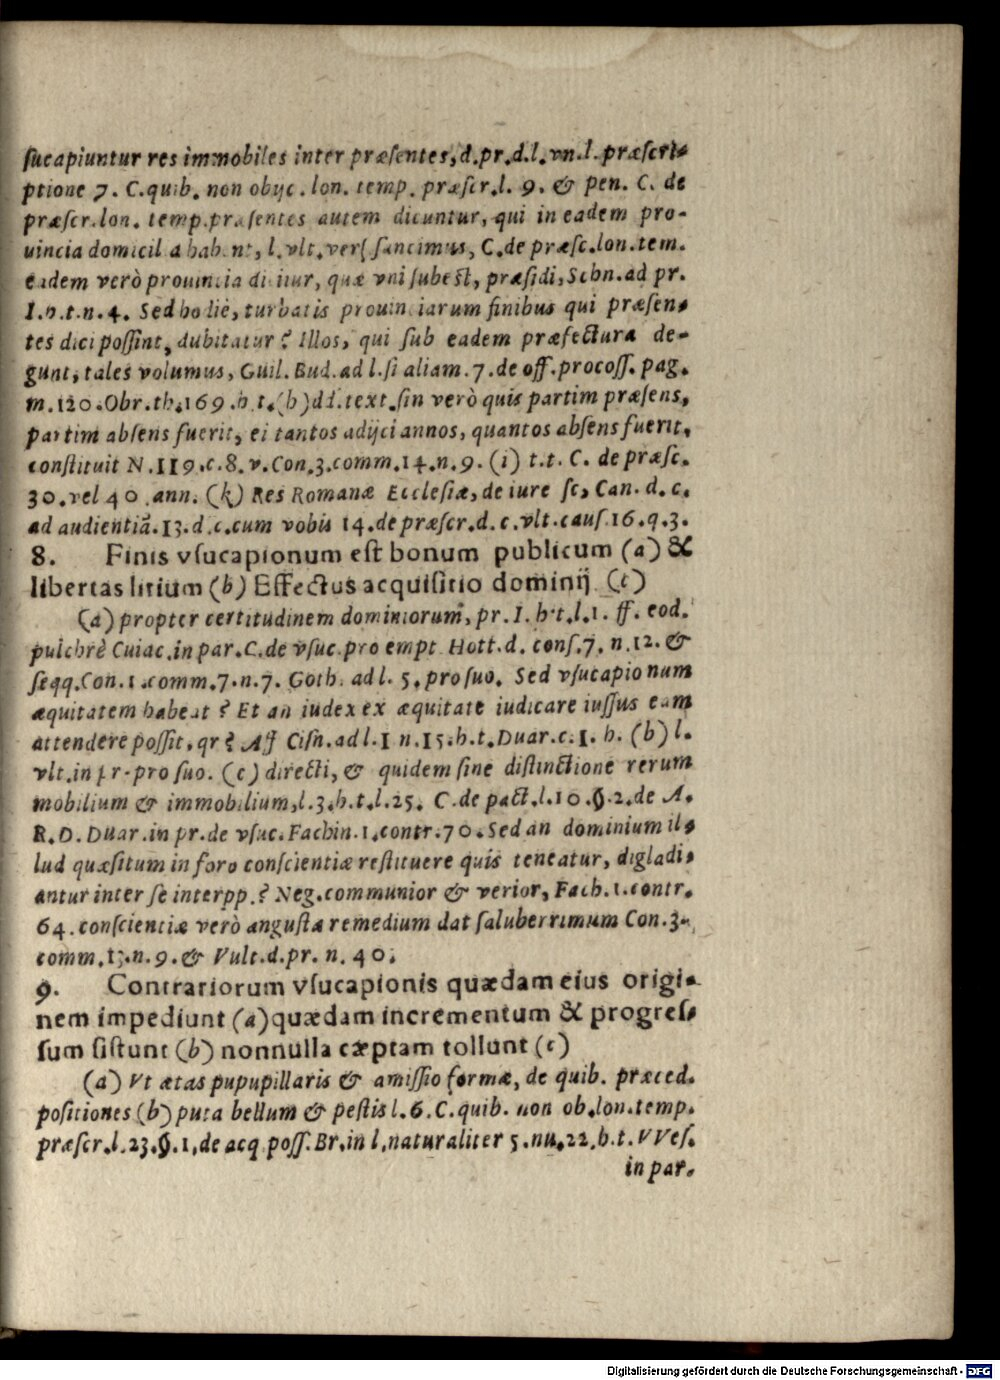 ſucapiuntur res immobiles inter præſentes, d.pr.d.l.vn.l.præſcri-
ptione 7. C.quib. non obijc. lon. temp. præſcr.l. 9. & pen. C. de
præſcr.lon. temp.præſentes autem dicuntur, qui in eadem pro-
uincia domicilia habent, l.vlt.verſ ſancimus, C.de præſc.lon.tem.
eadem verò prouincia dicitur, quæ vni ſubeſt, præſidi, Schn.ad pr.
I.h.t.n.4. Sed hodie, turbatis prouinciarum finibus qui præſen-
tes dici poſſint, dubitatur? Illos, qui ſub eadem præfectura de-
gunt, tales volumus, Guil. Bud.ad l.ſi aliam.7.de off.procoſſ. pag.
m.120.Obr.th.169.h t.(h)dd.text.ſin verò quis partim præſens,
partim abſens fuerit, ei tantos adijci annos, quantos abſens fuerit,
conſtituit N.119.c.8.v.Con.3.comm.14.n.9. (i) t.t. C. de præſc.
30.vel 40 ann. (k) Res Romanæ Eccleſiæ, de iure ſc, Can. d. c.
ad audientiã.13.d.c.cum vobis 14.de præſcr.d.c.vlt.cauſ.16.q.3.
8. Finis vſucapionum eſt bonum publicum (a) &
libertas litium (b) Effectus acquiſitio dominij (c)
(a) propter certitudinem dominiorum, pr. I. h.t.l.1. ff. eod.
pulchrè Cuiac.in par.C.de vſuc.pro empt Hott.d. conſ.7. n.12. &
ſeqq.Con.1.comm.7.n.7. Goth. ad l. 5. pro ſuo. Sed vſucapionum
æquitatem habeat? Et an iudex ex æquitate iudicare iuſſus eam
attendere poſſit, qr? Aff Ciſn.ad l.1 n.15.h.t.Duar.c.1. h. (b) l.
vlt.in pr-pro ſuo. (c) directi, & quidem ſine diſtinctione rerum
mobilium & immobilium, l.3.h.t.l.25. C.de pact.l.10.§.2.de A.
R.D. Duar.in pr.de vſuc.Fachin.1.contr.70. Sed an dominium il-
lud quæſitum in foro conſcientiæ reſtituere quis teneatur, digladi-
antur inter ſe interpp.? Neg.communior & verior, Fach.1.contr.
64.conſcientiæ verò anguſtæ remedium dat ſaluberrimum Con.3.
comm.13.n.9.& Vult.d.pr. n. 40.
9. Contrariorum vſucapionis quædam eius origi-
nem impediunt (a) quædam incrementum & progreſ-
ſum ſiſtunt (b) nonnulla cæptam tollunt (c)
(a) Vt ætas pupupillaris & amiſſio formæ, de quib. præced.
poſitiones (b) puta bellum & peſtis l. 6. C.quib. non ob.lon.temp.
præſcr.l.23.§.1, de acq poſſ. Br.in l.naturaliter 5.nu.22.h.t.VVeſ.
in par.
Digitalisierung gefördert durch die Deutsche Forschungsgemeinschaft - DFG